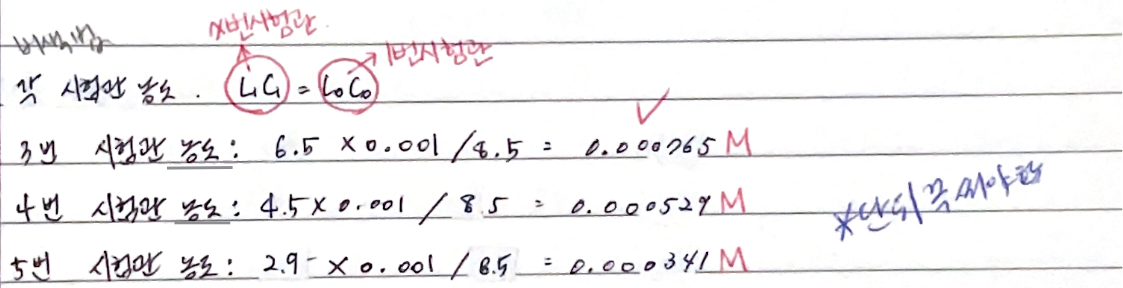 비색법
x번시험관
1번시험관
각 시험관 농도. L₁C₁ = L₀C₀
3번 시험관 농도: 6.5 × 0.001 / 8.5 = 0.000765 M
4번 시험관 농도: 4.5 × 0.001 / 8.5 = 0.000529 M
*단위 꼭 써야함
5번 시험관 농도: 2.9 × 0.001 / 8.5 = 0.000341 M